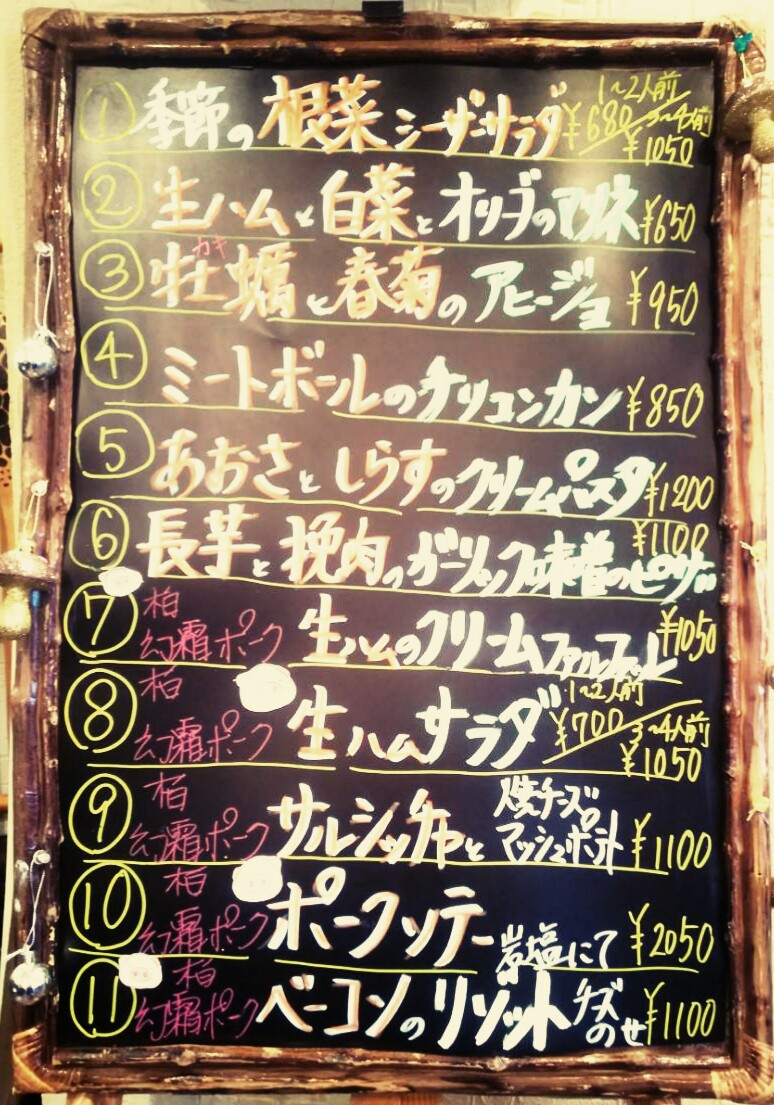 ① 季節の根菜シーザーサラダ 1〜2人前 ¥680 / 3〜4人前 ¥1050
② 生ハムと白菜とオリーブのマリネ ¥650
③ 牡蠣（ガキ）と春菊のアヒージョ ¥950
④ ミートボールのチリコンカン ¥850
⑤ あおさとしらすのクリームパスタ ¥1200
⑥ 長芋と挽肉のガーリック味噌のピザ ¥1100
⑦ 柏幻霜ポーク 生ハムのクリームファルファッレ ¥1050
⑧ 柏幻霜ポーク 生ハムサラダ 1〜2人前 ¥700 / 3〜4人前 ¥1050
⑨ 柏幻霜ポーク サルシッチャと焼チーズマッシュポテト ¥1100
⑩ 柏幻霜ポーク ポークソテー岩塩にて ¥2050
⑪ 柏幻霜ポーク ベーコンのリゾットチーズのせ ¥1100